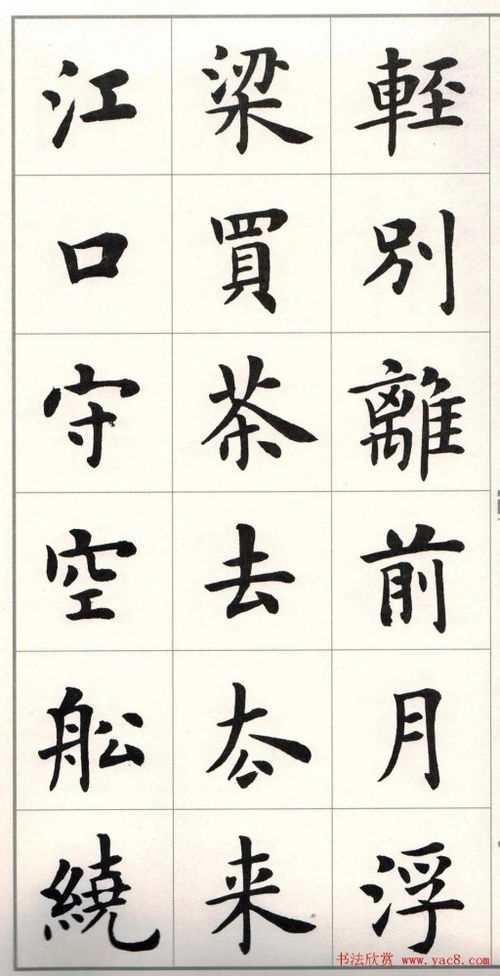 輕別離前月浮
梁買茶去厺来
江口守空舩繞
书法欣赏 www.yac8.com